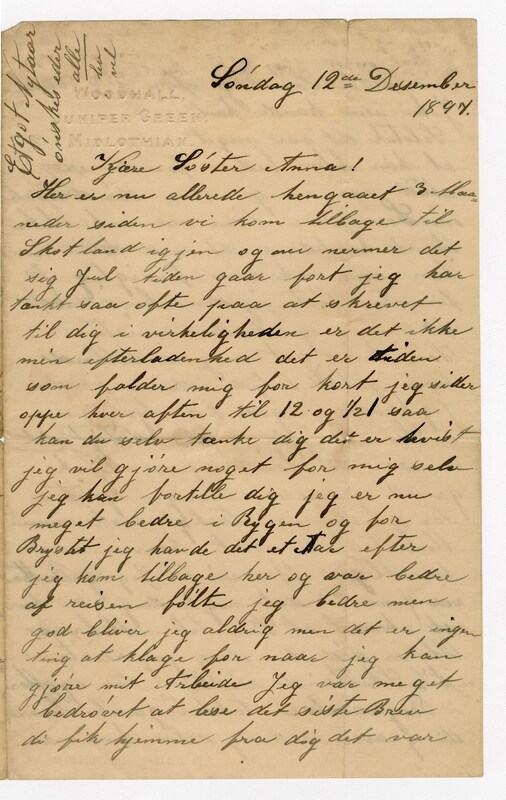 Et got Nytaar
önskes eder
alle
WOODHALL,
JUNIPER GREEN,
MIDLOTHIAN.
Söndag 12de Desember
1897.
Kjære Söster Anna!
Her er nu allerede hengaaet 3 Maa=
neder siden vi kom tilbage til
Skotland igjen og nu nermer det
sig Jul tiden gaar fort jeg har
tænkt saa ofte paa at skrevet
til dig i virkeligheden er det ikke
min efterladenhed det er tiden
som falder mig for kort jeg sitter
oppe hver aften til 12 og ½1 saa
kan du selv tænke dig det er hvist
jeg vil gjöre noget for mig selv
jeg kan fortelle dig jeg er nu
meget bedre i Rygen og for
Brystet jeg havde det et Aar efter
jeg kom tilbage her og var bedre
af reisen fölte jeg bedre men
god bliver jeg aldrig men det er ingen
ting at klage for naar jeg kan
gjöre mit Arbeide Jeg var meget
bedrövet at lese det siste Brev
di fik hjemme fra dig det var